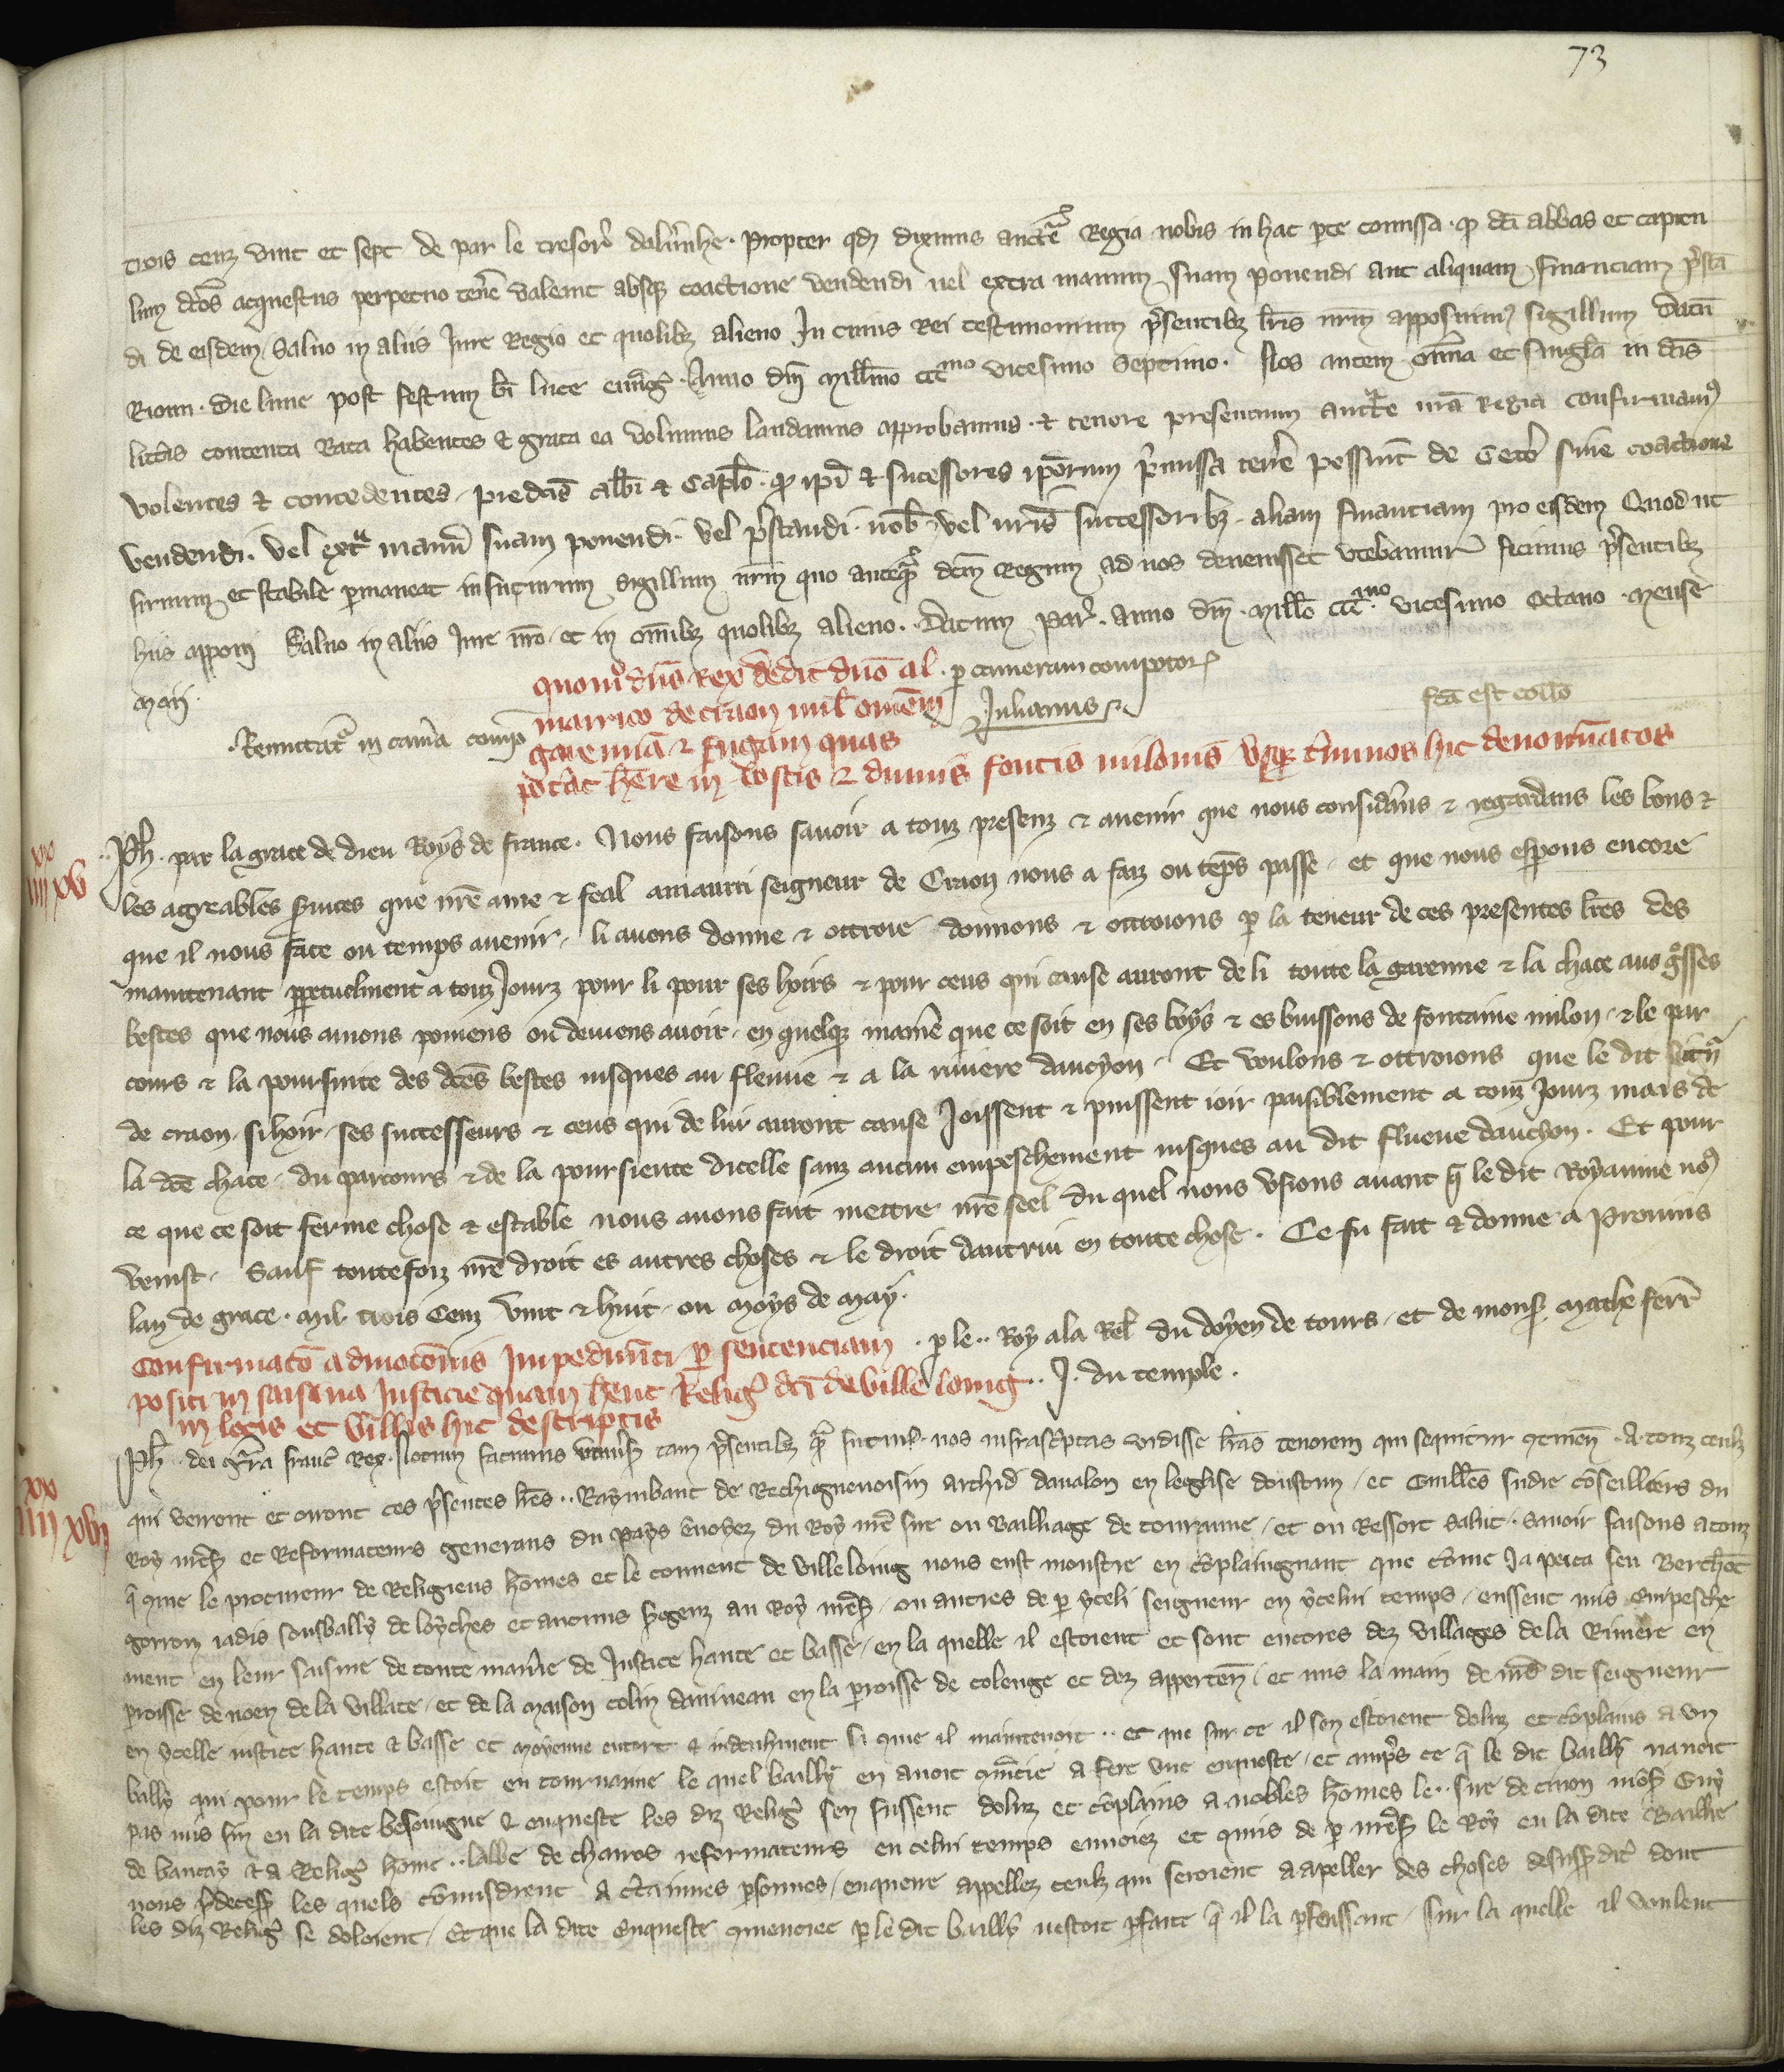 73
trois cenz vint et sept de par le tresorˀ dalunhe. Propter qd diximus auctᵉ Regia nobis in hac pte comissa. qͫ dci abbas et capitu
lum dcos acquestus perpetuo tenē valeant absqz coactione vendendi vel extra manum suam ponendi aut aliquam financiam p̄stā
di de eisdem, Salvo in aliis Jure Regio et quolibz alieno In cuius Rei testimonium p̄sentibz lris nrm apposuimꝰ sigillum Datū
Riom. die lune post festum bi luce euāg. Anno dnī Millmo cccmo vicesimo septimo. Nos autem omīa et singla in dcis
littis contenta Rata habentes et grata ea volumus laudamus approbamus. et tenore presentium auctte nrā Regia confirmamꝰ
volentes et concedentes, predcis abbi et caplo. qͫ ipi et sucessores ipōrum p̄missa tenē possint de ceto sine coactione
vendendi. vel extra manū suam ponendi. vel p̄standi. nob. vel nris successoribz. aliam financiam pro eisdem Quod ut
firmum et stabile pmaneat in futurum sigillum nrm quo anteq̄ dcm Regnum ad nos devenisset utebamur fecimus p̄sentibz
hiis apponi Salvo in aliis Jure nro. et in omibz quolibz alieno. Datum Par. anno dnī. Millo cccmo. vicesimo octavo. mense
Maii.
quomō dns Rex dedit dno al
. p cameram compotor
mairico de craon mil omēm
Julianus
fcā est collō
. Reputatᵒ in camā comp
garennā et fugam quas
pōtāt hēre in boscis et dumis fontis milonis usqz tminos hic denominatos
xx
iiii xv
Ph. par la grace de dieu Roys de france. Nous faisons savoir a touz presenz et avenir que nous considāns et regardans les bons et
les agreables suices que nrē ame et feal amaurri seigneur de Craon nous a faiz ou tēps passe, et que nous espons encore
que il nous face ou temps avenir, li avons donne et ottroie donnons et ottroions p la teneur de ces presentes lres des
maintenant ppetuelment a touz Jourz pour li pour ses hoirs et pour ceus qui cause auront de li toute la garenne et la chace aus gᵒsses
bestes que nous avons povens ou devens avoir, en quelqz manie que ce soit en ses boys et es buissons de fontaine milon, et le par
cours et la poursuite des dces bestes jusques au fleuve et a la riviere dancyon. Et voulons et ottroions que le dit seignʳ
de craon, si hoir, ses successeurs et ceus qui de lui auront cause Joissent et puissent ioir paisiblement a touz Jourz mais de
la dce chace, du parcours et de la poursiente dicelle sanz aucun empeschement jusques au dit flueve dauchon. Et pour
ce que ce soit ferme chose et estable nous avons fait mettre nrē seel du quel nous usions avant q̄ le dit Royaume noꝰ
venist. Sauf toutefoiz nrē droit es autres choses et le droit dautrui en toute chose. Ce fu fait et donne a Provins
lan de grace. Mil. trois cenz vint et huit. ou moys de May.
Confirmatō admotonis Impedimti p sentenciam
. p le .. Roy a la Rel. du doyen de tours, et de monsʳ Mathe ferr̄
positi in saisina Justicie quam hent Religˀ dci de ville loing
.. J. du temple.
in locis et villis hic descriptis
xx
iiii xvi
Ph. dei grā franc Rex. Notum facimus univsis tam p̄sentibz q̄ futuris. nos infrascptas vidisse lras tenorem qui sequitur ꝯtinen. A touz ceulz
qui verront et orront ces p̄sentes lres .. Raymbaut de Rechignevoisin archid davalon en leglise doustun, et Guilles sudre cōseilliers du
Roy nrēs. et Reformateurs generaus du pays envoyez du Roy nrē sire ou Bailliage de touraine, et ou Ressort salut. Savoir faisons a touz
q̄ cme le procureur de Religieus homes et le couvent de ville loing nous eust monstre en ꝯplaingnant que come Ja pieca feu Berthelot
gorron jadis sousbailly de loyches et aucuns sgenz au Roy nrēs. ou autres de p yceli seigneur en ycelui temps, eussent mis empesche
ment en leur saisine de toute manie de Justice haute et basse, en la quelle il estoient et sont encores dez villages de la Riviere en
proisse de noen de la villate, et de la maison colin davineau en la proisse de colenge et dez apperten, et mis la main de nrē dit seigneur
en ycelle justice haute et basse et moyenne entort et indeuhment si cme il maintenoit .. et que sur ce il sen estoient doluz et ꝯplains a un
bailly qui pour le temps estoit en tourraine le quel bailly en avoit cmēcie a fere une enqueste, et amp̄s ce q̄ le dit bailly navoit
pas mis fin en la dite besoingne et enqueste les diz Religˀ sen fussent doluz et ꝯplains a nobles homes le .. sire de craon mōs Guy
de baucay et a Religˀ home .. labbe de charos reformateurs en celui temps envoiez et cmis de p nrēs le Roy en la dite Baillie
nous p̄decess. les quels cōmisdrent a ctainnes psonnes, enquerre appellez ceulz qui seroient a apeller des choses desusdit dont
les diz Religˀ se doloient, Et que la dite Enqueste cmenciee p le dit bailly nestoit pfaite q̄ il la pfeissent, sur la quelle il voulent